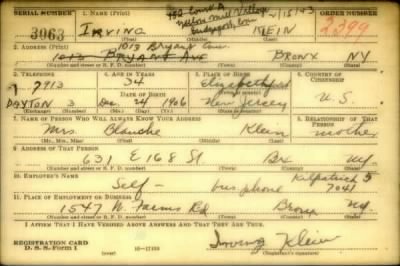 SERIAL NUMBER 1. NAME (Print) ORDER NUMBER
3963 IRVING KLEIN 2399
2. ADDRESS (Print) 1013 Bryant Ave
1013 BRYANT AVE BRONX NY
(Number and street or R. F. D. number) (Town) (County) (State)
3. TELEPHONE 4. AGE IN YEARS 5. PLACE OF BIRTH 6. COUNTRY OF CITIZENSHIP
34 Elizabethport
DAYTON 3 Dec. 24 1906 New Jersey U.S.
7. NAME OF PERSON WHO WILL ALWAYS KNOW YOUR ADDRESS 8. RELATIONSHIP OF THAT PERSON
Mrs. Blanche Klein mother
(Mr., Mrs., Miss) (First) (Middle) (Last)
9. ADDRESS OF THAT PERSON
631 E 168 St Bx NY.
(Number and street or R. F. D. number) (Town) (County) (State)
10. EMPLOYER'S NAME Kilpatrick 5
Self - bus phone 7041
11. PLACE OF EMPLOYMENT OR BUSINESS
1547 W. Farms Rd Bronx NY
(Number and street or R. F. D. number) (Town) (County) (State)
I AFFIRM THAT I HAVE VERIFIED ABOVE ANSWERS AND THAT THEY ARE TRUE.
REGISTRATION CARD
D. S. S. Form 1 (over) Irving Klein
(Registrant's signature)